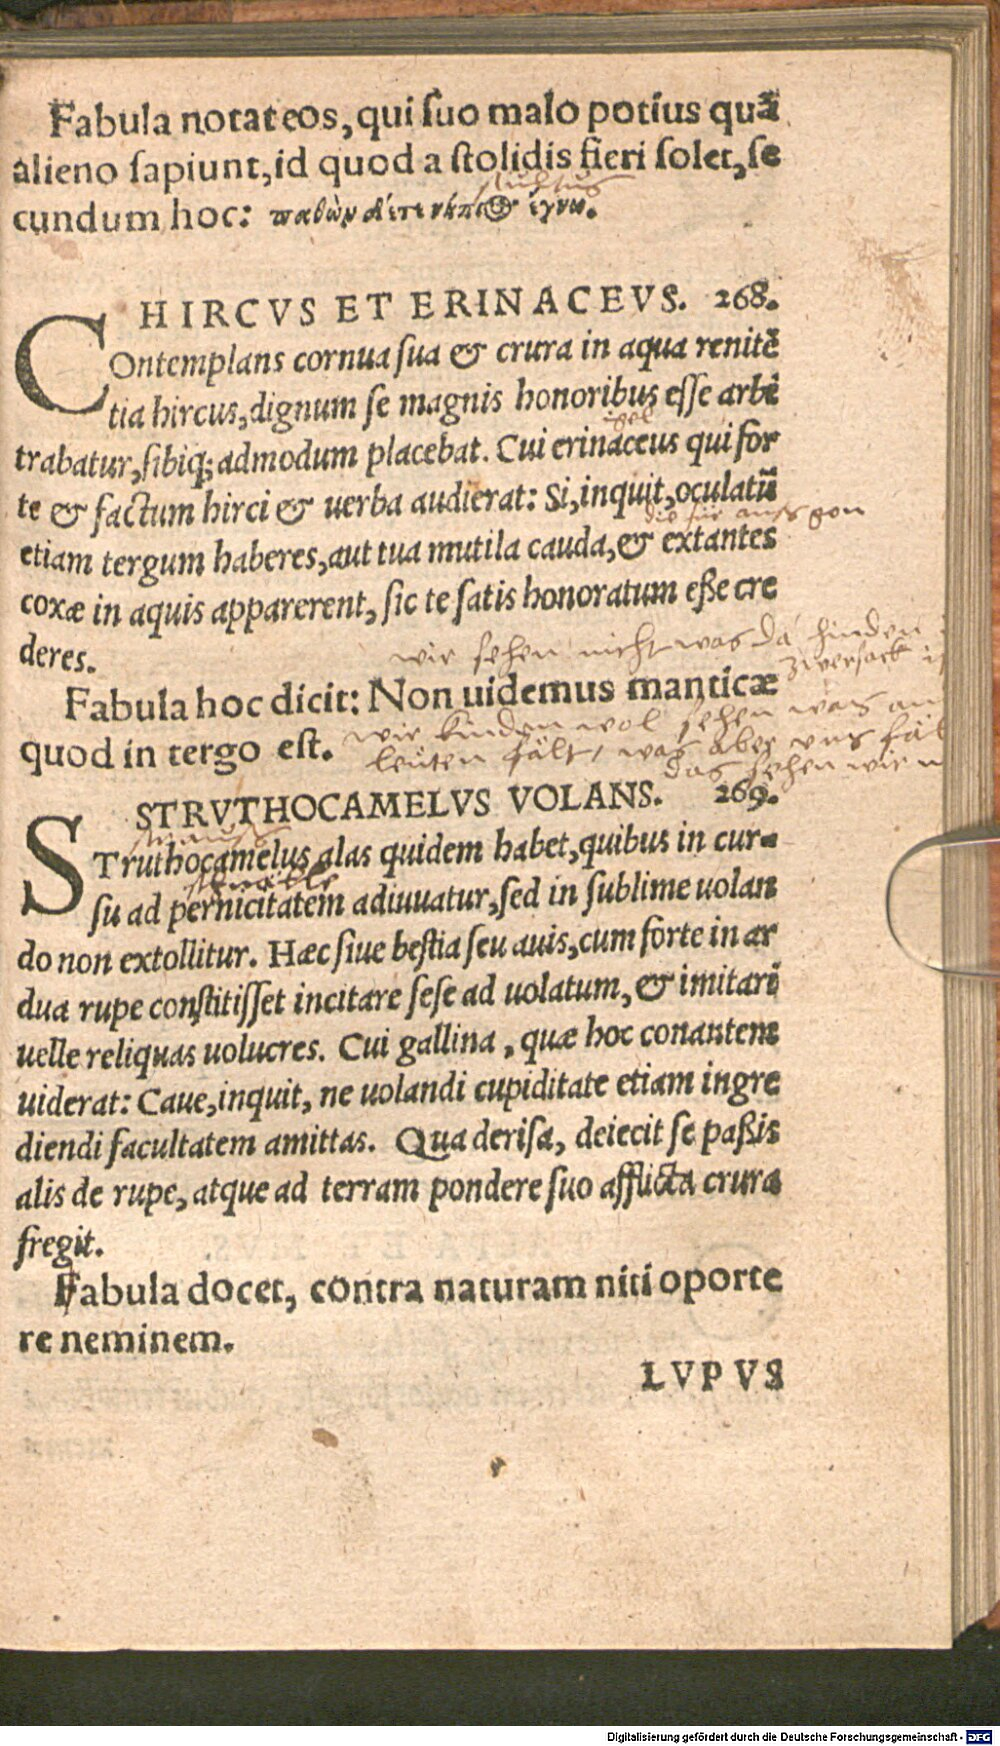 Fabula notat eos, qui suo malo potius quã
alieno sapiunt, id quod a stolidis fieri solet, se
stultus
cundum hoc: παθὼν δέ τε νήπιος ἔγνω.
HIRCVS ET ERINACEVS. 268.
COntemplans cornua sua & crura in aqua renitẽ
tia hircus, dignum se magnis honoribus esse arbi
igel
trabatur, sibiq; admodum placebat. Cui erinaceus qui for
te & factum hirci & uerba audierat: Si, inquit, oculatũ
die für auss gon
etiam tergum haberes, aut tua mutila cauda, & extantes
coxæ in aquis apparerent, sic te satis honoratum eße cre
deres.
wir sehen nicht was da hinden
zwersack
Fabula hoc dicit: Non uidemus manticæ
quod in tergo est.
wir kinden wol sehen was an
leüten fält, was aber vns fäl
das sehen wir n
STRVTHOCAMELVS VOLANS. 269.
strauss
STruthocamelus alas quidem habet, quibus in cur-
schnälle
su ad pernicitatem adiuuatur, sed in sublime uolan
do non extollitur. Hæc siue bestia seu auis, cum forte in ar
dua rupe constitisset incitare sese ad uolatum, & imitari
uelle reliquas uolucres. Cui gallina, quæ hoc conantem
uiderat: Caue, inquit, ne uolandi cupiditate etiam ingre
diendi facultatem amittas. Qua derisa, deiecit se paßis
alis de rupe, atque ad terram pondere suo afflicta crura
fregit.
Fabula docet, contra naturam niti oporte
re neminem.
LVPVS
Digitalisierung gefördert durch die Deutsche Forschungsgemeinschaft - DFG